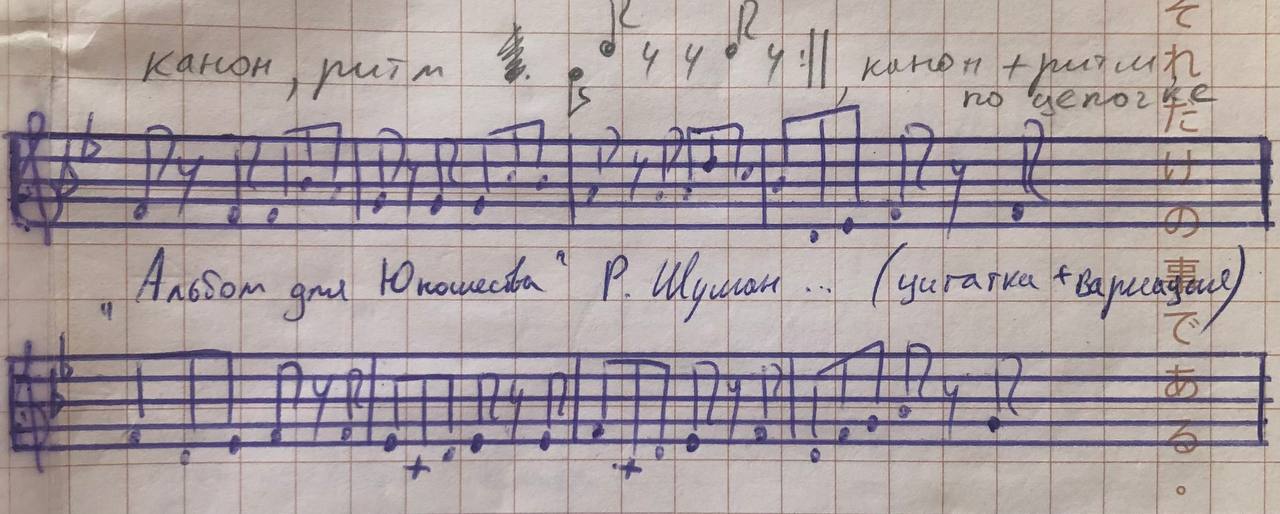 канон, ритм
канон + ритм
по цепочке
„Альбом для Юношества" Р. Шуман ... (цитатка + вариация)
それだけの事である。